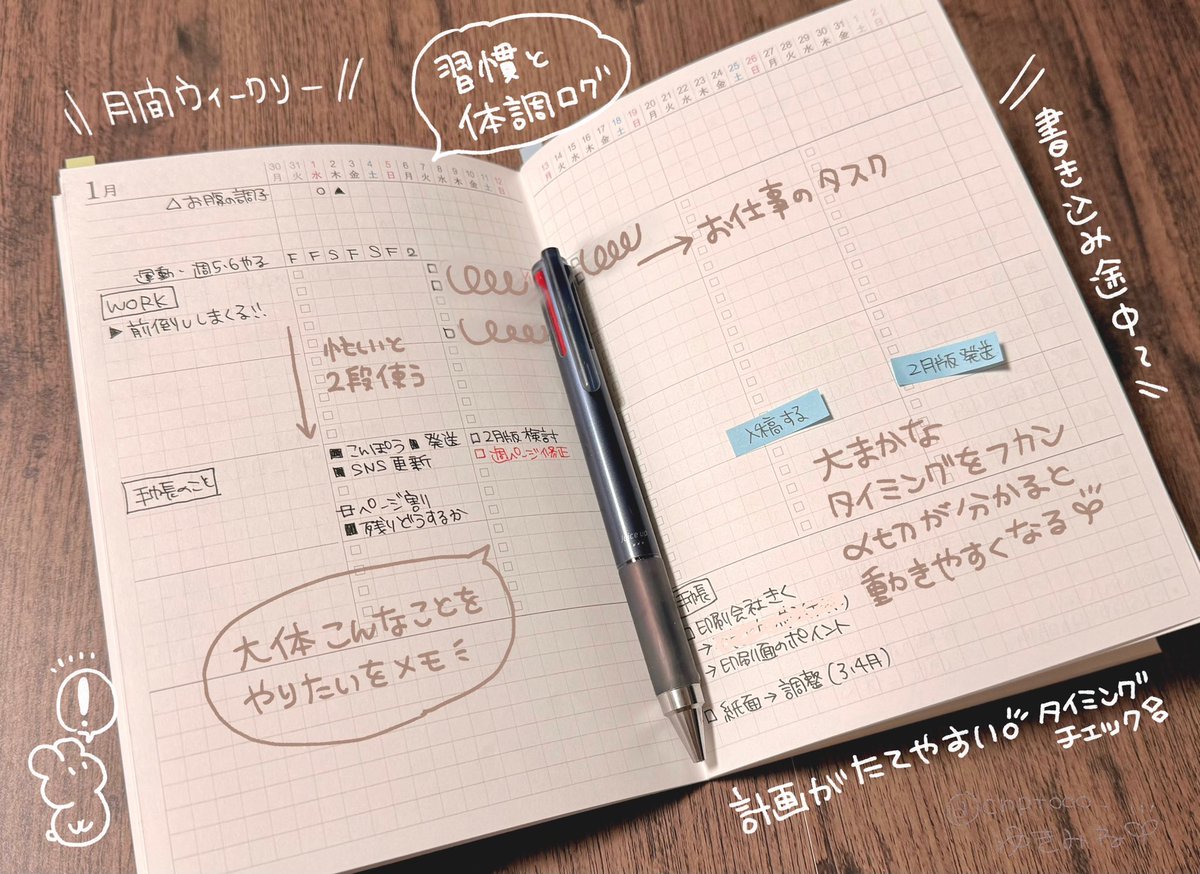 \\ 月間ウィークリー //
習慣と
体調ログ
\\ 書き込み途中〜 //
1月
30 31 1 2 3 4 5 6 7 8 9 10 11 12
月 火 水 木 金 土 日 月 火 水 木 金 土 日
△お腹の調子
○ ▲
運動・週5・6やる
F F S F S F 2
WORK
▶前倒ししまくる!!
忙しいと
2段使う
■こんぽう ■発送
■SNS更新
ページ割り
■残りどうするか
□2月版検討
□週ページ修正
手帳のこと
大体こんなことを
やりたいをメモ
13 14 15 16 17 18 19 20 21 22 23 24 25 26 27 28 29 30 31 1 2
月 火 水 木 金 土 日 月 火 水 木 金 土 日 月 火 水 木 金 土 日
→お仕事のタスク
2月版発送
入稿する
大まかな
タイミングをフカン
〆切が分かると
動きやすくなる
手帳
□印刷会社きく
→印刷面のポイント
□紙面→調整(3,4月)
Juice up
!
計画がたてやすい
タイミング
チェック
ゆきみる